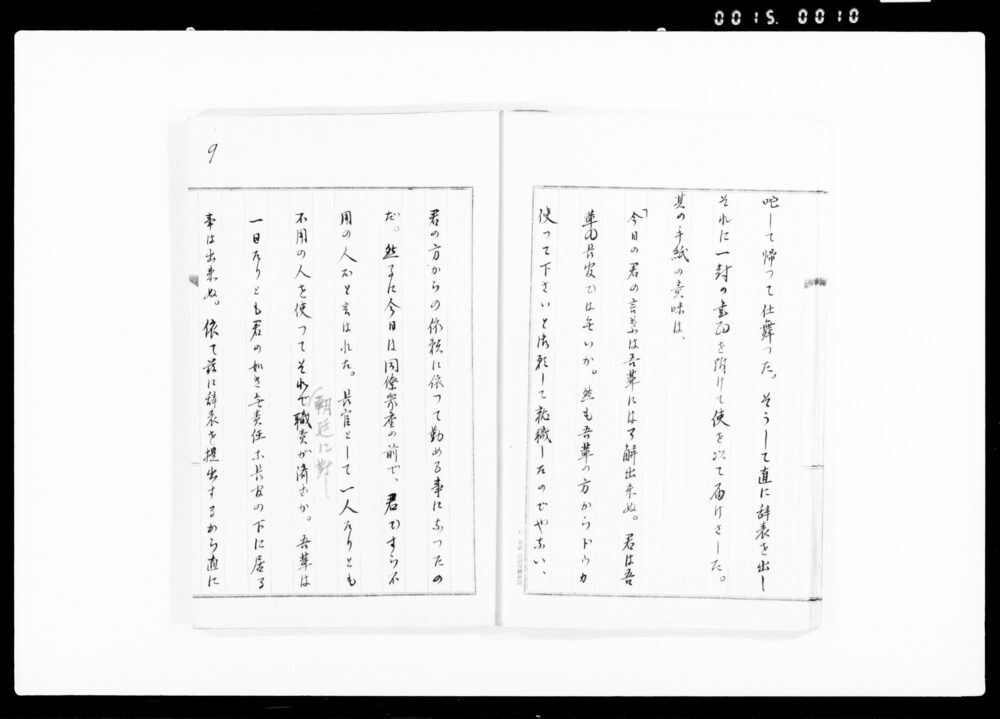 0015. 0010
咤して帰つて仕舞つた。そうして直に辞表を出し
それに一封の書面を附けて使を以て届けさした。
其の手紙の意味は、
「今日の君の言葉は吾輩には了解出来ぬ。君は吾
輩の長官では無いか。然も吾輩の方からドウカ
使つて下さいと御願して就職したのでやない、
9
君の方からの依頼に依つて勤める事になつたの
だ。然るに今日は同僚衆座の前で、君ですら不
用の人だと言はれた。長官として一人なりとも
不用の人を使つてそれで職責が済むか。吾輩は
朝廷に対し
一日なりとも君の如き無責任な長官の下に居る
事は出来ぬ。依て茲に辞表を提出するから直に